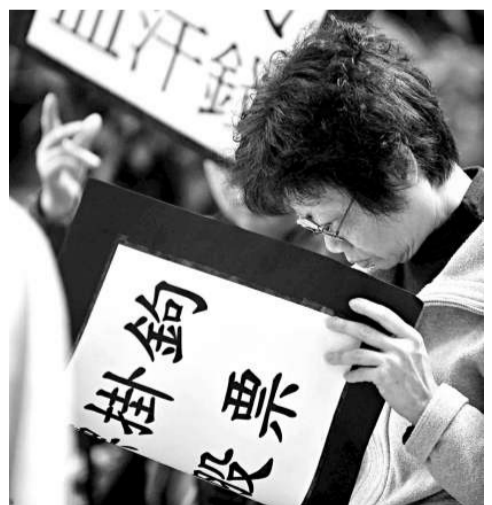 血汗錢
掛鉤
股票